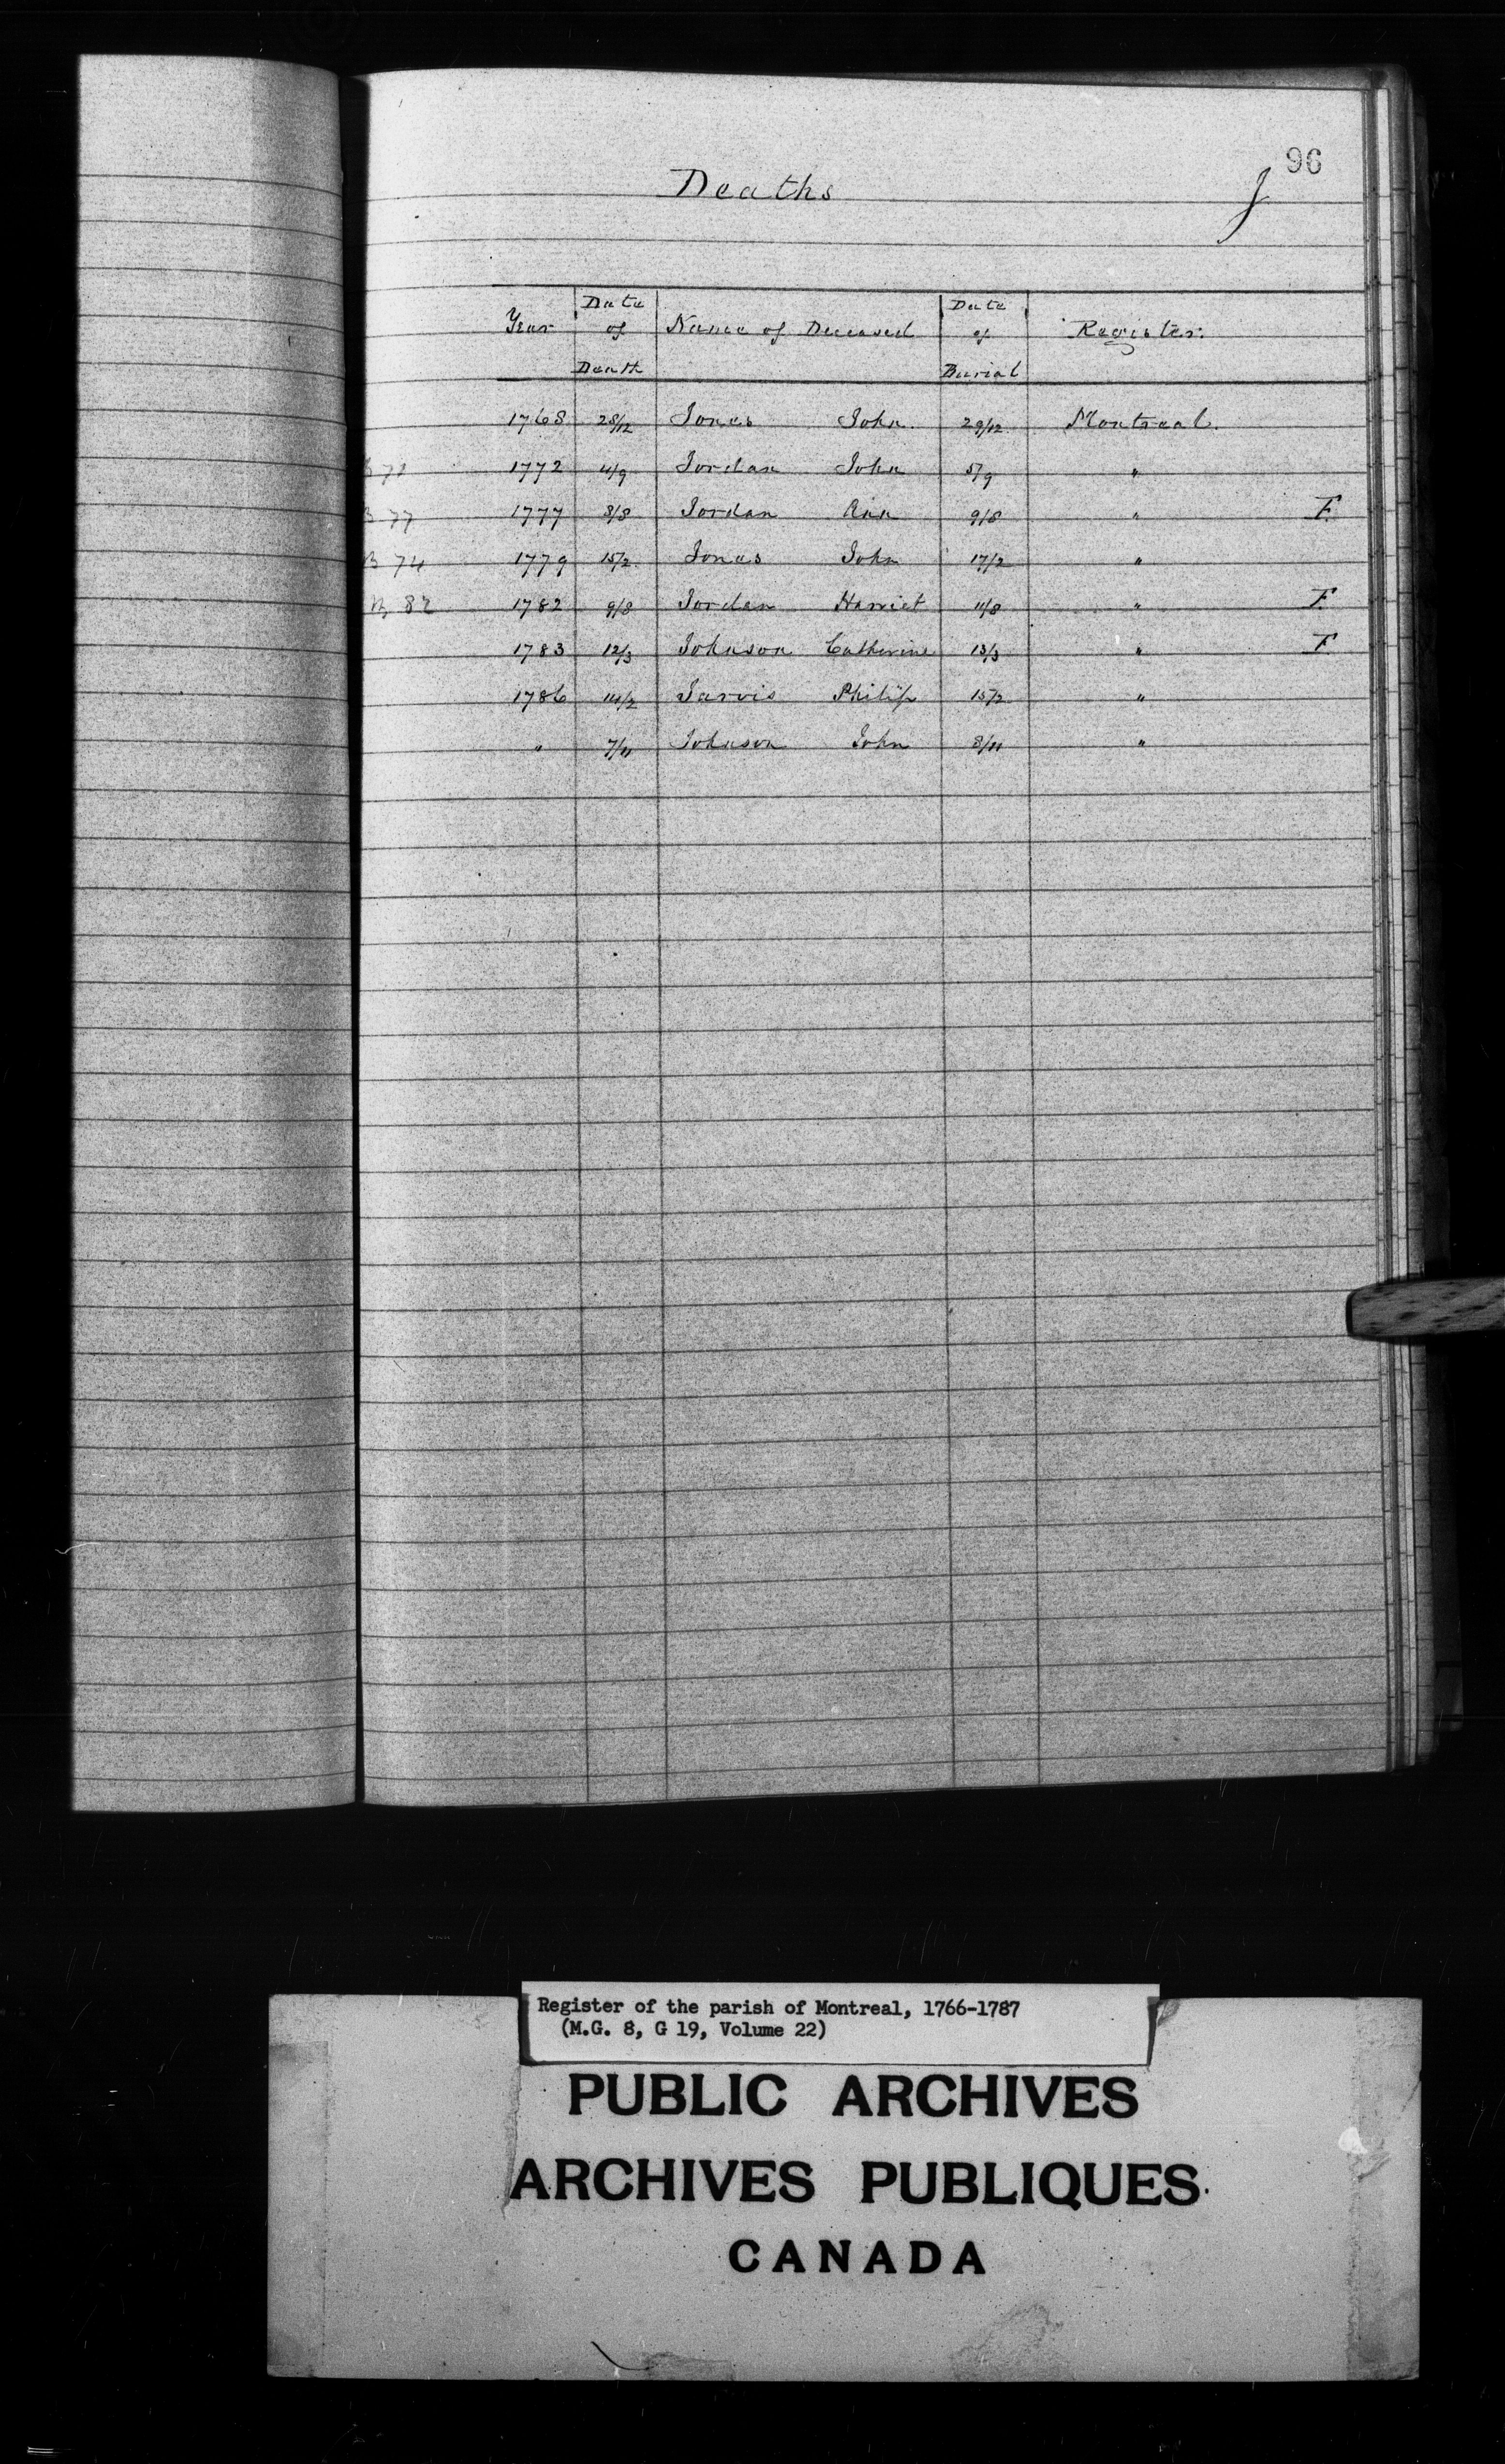 96
Deaths J
Year Date of Death Name of Deceased Date of Burial Register.
1768 28/12 Jones John. 29/12 Montreal.
1772 4/9 Jordan John 5/9 "
B 77 1777 8/8 Jordan Ann 9/8 " F.
B 74 1779 15/2 Jones John 17/2 "
B 82 1782 9/8 Jordan Harriet 11/8 " F.
1783 12/3 Johnson Catherine 13/3 " F
1786 14/2 Jarvis Philip 15/2 "
" 7/11 Johnson John 8/11 "
Register of the parish of Montreal, 1766-1787
(M.G. 8, G 19, Volume 22)
PUBLIC ARCHIVES
ARCHIVES PUBLIQUES
CANADA